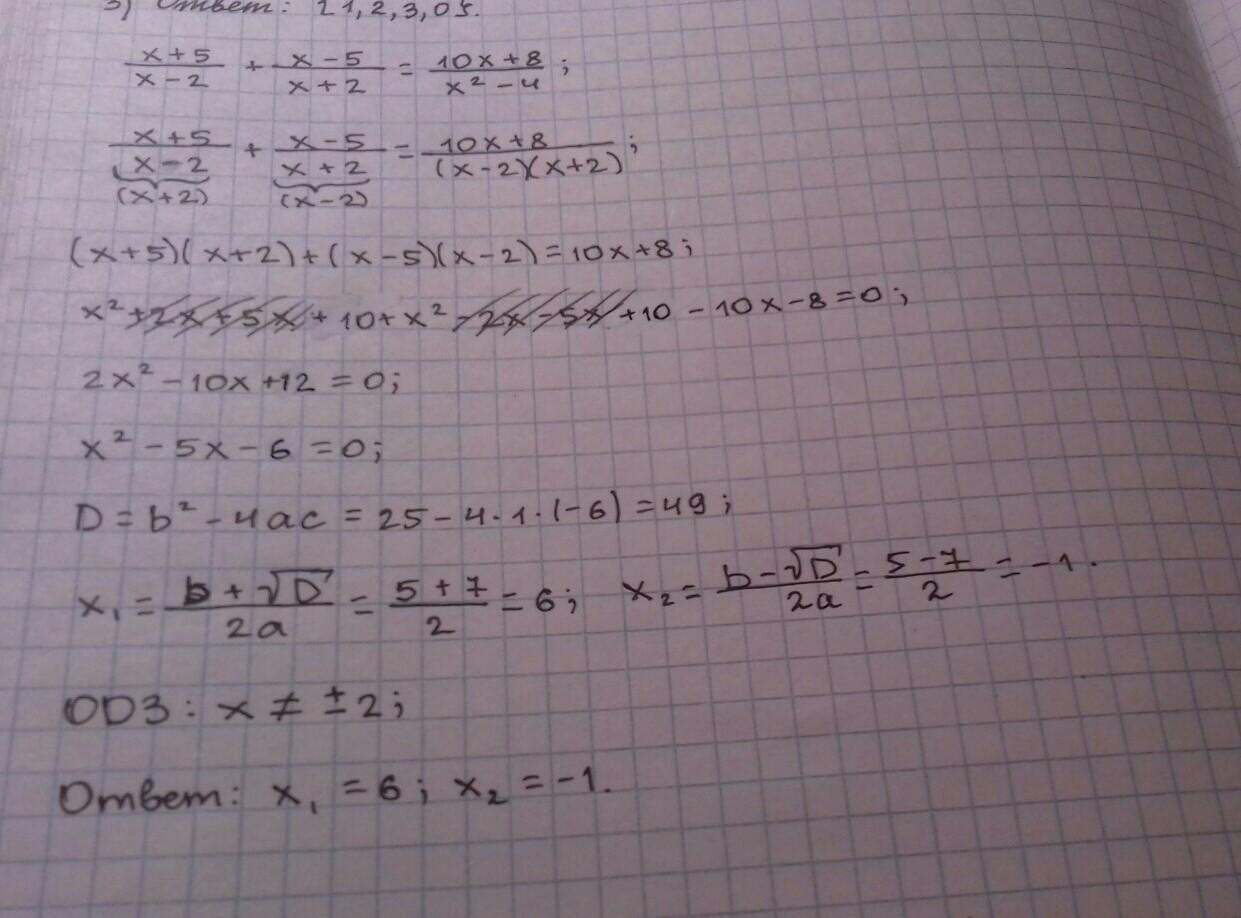 3) Ответ: {1,2,3,05.
x+5/x-2 + x-5/x+2 = 10x+8/x²-4;
x+5/x-2 + x-5/x+2 = 10x+8/(x-2)(x+2);
(x+2) (x-2)
(x+5)(x+2)+(x-5)(x-2)=10x+8;
x²+2x+5x+10+x²-2x-5x+10-10x-8=0;
2x²-10x+12=0;
x²-5x-6=0;
D=b²-4ac=25-4·1·(-6)=49;
x₁=b+√D/2a=5+7/2=6; x₂=b-√D/2a=5-7/2=-1.
ОДЗ: x≠±2;
Ответ: x₁=6; x₂=-1.